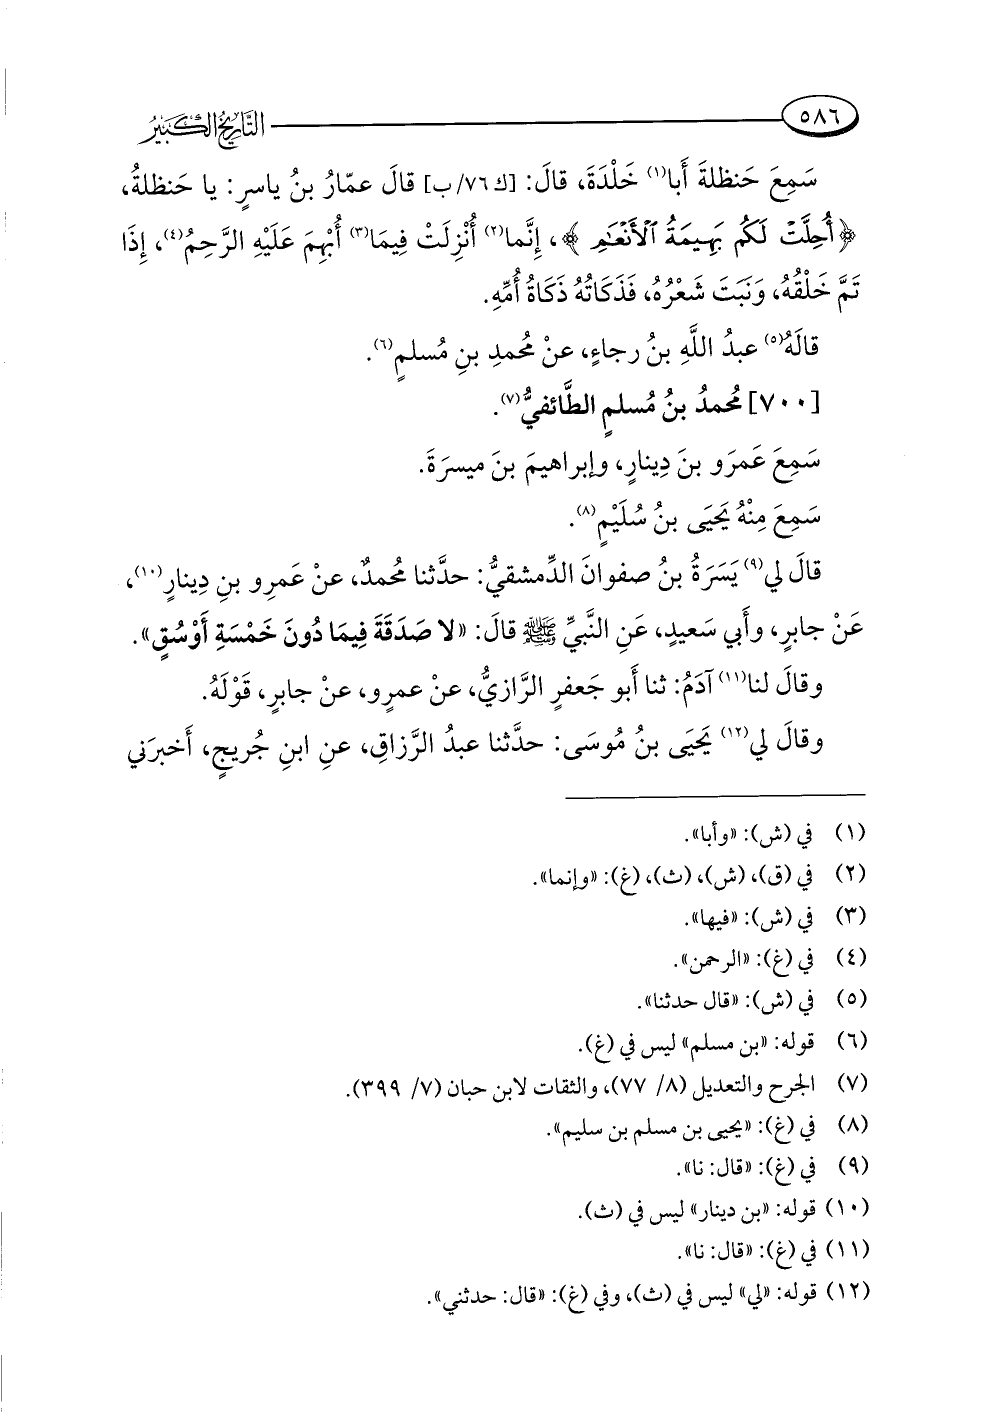 ٥٨٦
التَّارِيخُ الْكَبِيرُ
سَمِعَ حَنظلةَ أَبا(١) خَلْدَةَ، قالَ: [ك٧٦/ ب] قالَ عمّارُ بنُ ياسرٍ: يا حَنظلةُ،
﴿أُحِلَّتْ لَكُم بَهِيمَةُ ٱلْأَنْعَٰمِ﴾، إِنَّما(٢) أُنْزِلَتْ فِيمَا(٣) أُبْهِمَ عَلَيْهِ الرَّحِمُ(٤)، إِذَا
تَمَّ خَلْقُهُ، وَنَبَتَ شَعْرُهُ، فَذَكَاتُهُ ذَكَاةُ أُمِّهِ.
قالَهُ(٥) عبدُ اللَّهِ بنُ رجاءٍ، عنْ مُحمدِ بنِ مُسلمٍ(٦).
[٧٠٠] مُحمدُ بنُ مُسلمٍ الطَّائفيُّ(٧).
سَمِعَ عَمرَو بنَ دِينارٍ، وإبراهيمَ بنَ ميسرَةَ.
سَمِعَ مِنْهُ يَحيَى بنُ سُلَيْمٍ(٨).
قالَ لي(٩) يَسَرَةُ بنُ صفوانَ الدِّمشقيُّ: حدَّثنا مُحمدٌ، عنْ عَمرِو بنِ دِينارٍ(١٠)،
عَنْ جابرٍ، وأَبي سَعيدٍ، عَنِ النَّبيِّ ﷺ قالَ: «لا صَدَقَةَ فِيمَا دُونَ خَمْسَةِ أَوْسُقٍ».
وقالَ لنا(١١) آدَمُ: ثنا أَبو جَعفرٍ الرَّازيُّ، عنْ عمرٍو، عنْ جابرٍ، قَوْلَهُ.
وقالَ لي(١٢) يَحيَى بنُ مُوسَى: حدَّثنا عبدُ الرَّزاقِ، عنِ ابنِ جُريجٍ، أَخبرَني
(١) في (ش): «وأبا».
(٢) في (ق)، (ش)، (ث)، (غ): «وإنما».
(٣) في (ش): «فيها».
(٤) في (غ): «الرحمن».
(٥) في (ش): «قال حدثنا».
(٦) قوله: «بن مسلم» ليس في (غ).
(٧) الجرح والتعديل (٨/ ٧٧)، والثقات لابن حبان (٧/ ٣٩٩).
(٨) في (غ): «يحيى بن مسلم بن سليم».
(٩) في (غ): «قال: نا».
(١٠) قوله: «بن دينار» ليس في (ث).
(١١) في (غ): «قال: نا».
(١٢) قوله: «لي» ليس في (ث)، وفي (غ): «قال: حدثني».